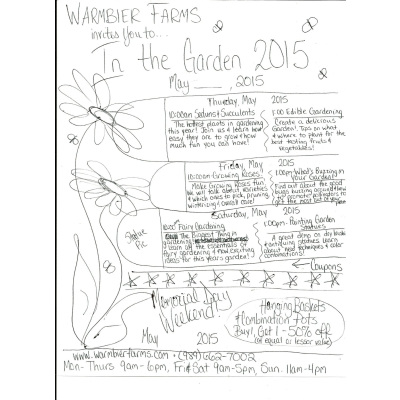 WARMBIER FARMS
invites you to...
In the Garden 2015
May ___, 2015
Thursday, May 2015
10:00am Sedums & Succulents
The hottest plants in gardening
this year! Join us & learn how
easy they are to grow & how
much fun you can have!
1:00 Edible Gardening
Create a delicious
Garden! Tips on what
& where to plant for the
best tasting fruits &
vegetables!
Friday, May 2015
10:00am Growing Roses!
Make Growing Roses fun,
we will talk about varieties
& which ones to pick, pruning,
wintering & overall care!
1:00pm What's Buzzing in
Your Garden!
Find out about the good
bugs buzzing around & how
to get the most out of your
Saturday, May 2015
10:00 Fairy Gardening
The Biggest Thing in
gardening
learn all the essentials of
fairy gardening & new exciting
ideas for this years garden!
1:00pm - Painting Garden
Statues
A great demo on dry brush
& antiquing statues. Learn
about neat techniques & color
combinations!
Statue
Pic
Coupons
Memorial Day
Weekend!
May 2015
Hanging Baskets
& Combination Pots
Buy 1, Get 1 - 50% off
(of equal or lesser value)
www.warmbierfarms.com • (989) 662-7002
Mon - Thurs 9am - 6pm, Fri & Sat 9am - 5pm, Sun. 11am - 4pm